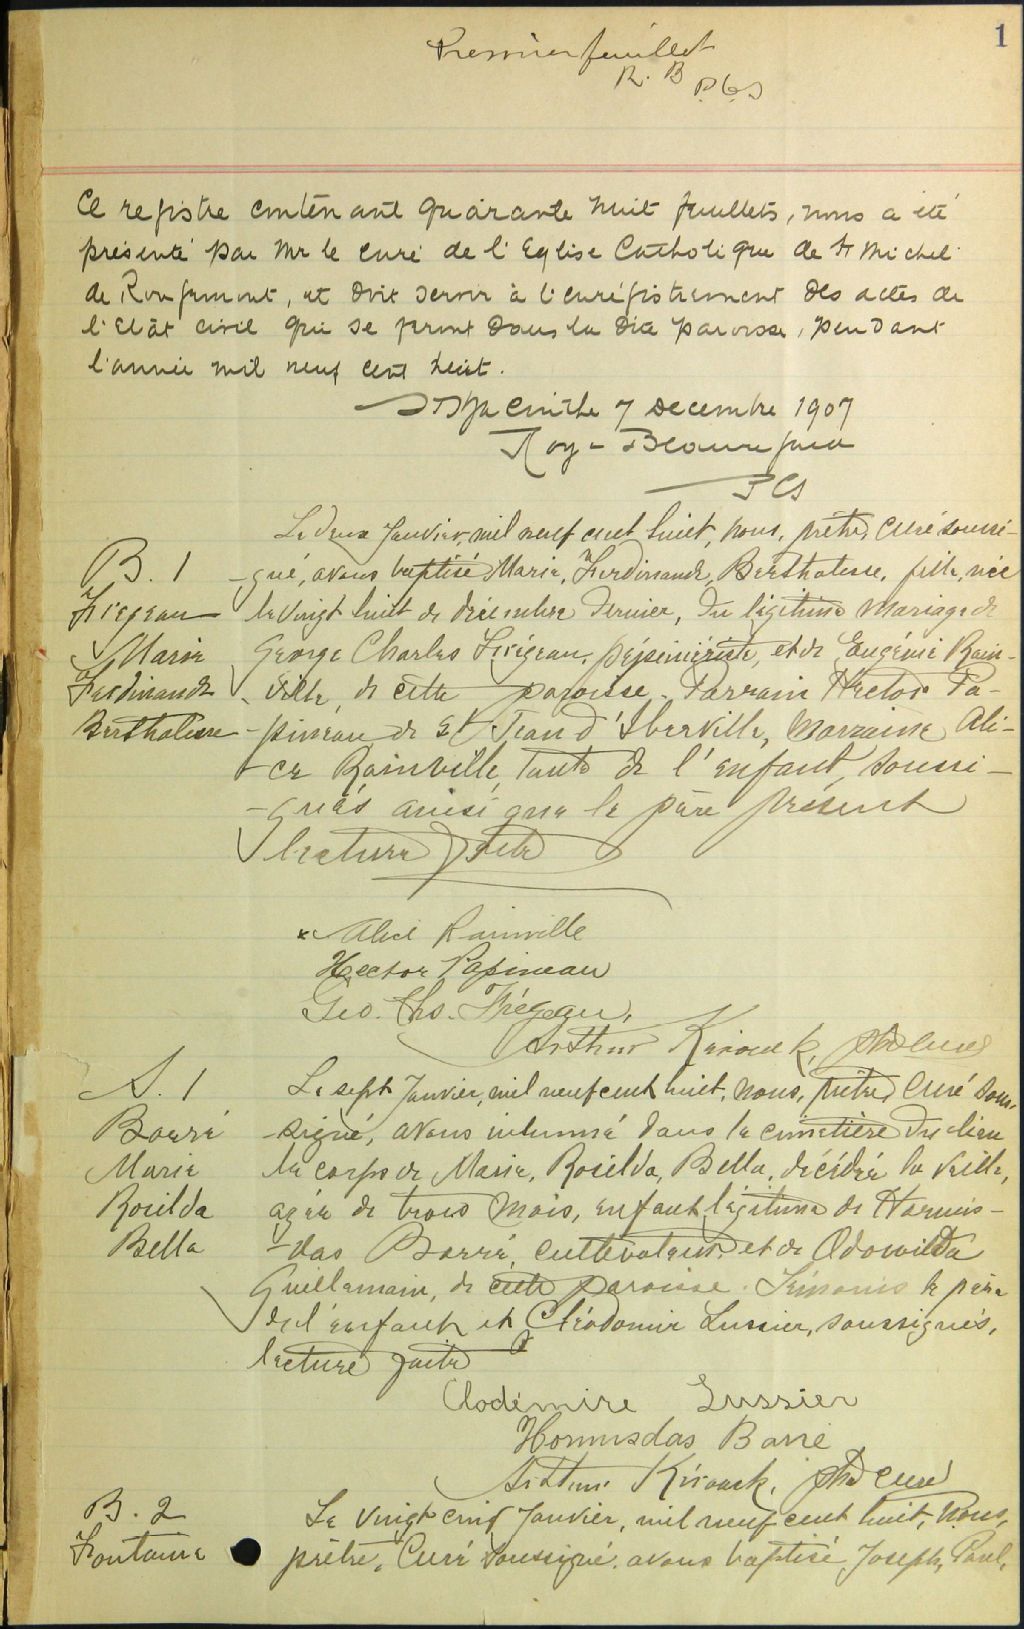 1
Premier feuillet
R. B P.C.S
Ce registre contenant quarante huit feuillets, nous a été
présenté par Mr le curé de l'Eglise Catholique de St Michel
de Rougemont, et doit servir à l'enrégistrement des actes de
l'Etât civil qui se feront dans la dite paroisse, pendant
l'année mil neuf cent huit.
St Hyacinthe 7 Decembre 1907
Roy - Beauregard
P C S
Le deux Janvier, mil neuf cent huit, nous, prêtre, Curé soussi-
B. 1
-gné, avons baptisé Marie, Ferdinande, Berthalisse, fille, née
Frégeau
le vingt huit de décembre dernier, du légitime mariage de
Marie
George Charles Frégeau, pépiniériste, et de Eugénie Rain-
Ferdinande
-ville, de cette paroisse. Parrain Hector Pa-
Berthalisse
-pineau de St Jean d'Iberville, Marraine Ali-
-ce Rainville, tante de l'enfant, soussi-
-gnés ainsi que le père présent
lecture faite
x Alice Rainville
Hector Papineau
Geo. Chs. Frégeau,
Arthur Kérouack, ptre curé
S. 1
Le sept Janvier, mil neuf cent huit, nous, prêtre Curé sous-
Barré
-signé, avons inhumé dans le cimetière du lieu
Marie
le corps de Marie, Rosilda, Bella, décédée la veille,
Rosilda
agée de trois mois, enfant légitime de Hormis-
Bella
-das Barré, cultivateur, et de Odowilda
Guillemain, de cette paroisse. Témoins le père
de l'enfant et Cléodomir Lussier, soussignés,
lecture faite
Clodémire Lussier
Hormisdas Barré
Arthur Kérouack, ptre curé
B. 2
Le vingt cinq Janvier, mil neuf cent huit, nous,
Fontaine
prêtre, Curé soussigné, avons baptisé Joseph, Paul,